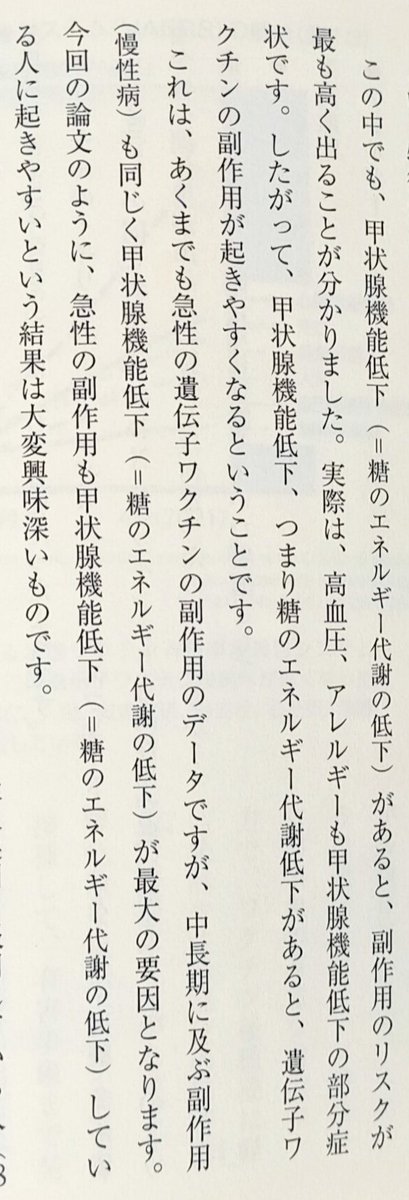 この中でも、甲状腺機能低下（＝糖のエネルギー代謝の低下）があると、副作用のリスクが
最も高く出ることが分かりました。実際は、高血圧、アレルギーも甲状腺機能低下の部分症
状です。したがって、甲状腺機能低下、つまり糖のエネルギー代謝低下があると、遺伝子ワ
クチンの副作用が起きやすくなるということです。
これは、あくまでも急性の遺伝子ワクチンの副作用のデータですが、中長期に及ぶ副作用
（慢性病）も同じく甲状腺機能低下（＝糖のエネルギー代謝の低下）が最大の要因となります。
今回の論文のように、急性の副作用も甲状腺機能低下（＝糖のエネルギー代謝の低下）してい
る人に起きやすいという結果は大変興味深いものです。